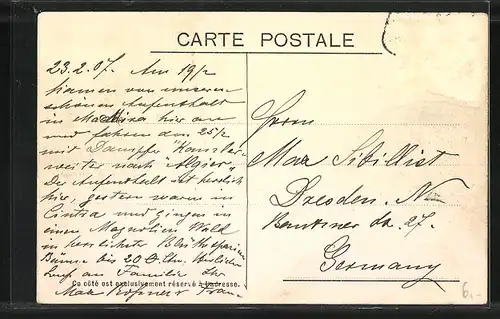 CARTE POSTALE
23.2.07. Am 19/2
kamen von unserem
schönen Aufenthalt
in Madeira hier an
und fahren den 25/2
mit Dampfer "Kanzler"
weiter nach "Algier".
Der Aufenthalt ist herrlich
hier, gestern waren in
Cintra und gingen in
einen Magnolien Wald
in herrlichster
Bäume bis 20
an Familie Ihr
Ce côté est exclusivement réservé à l'adresse.
Max u Frau
Herrn
Max
Dresden. N.
Bautzner Str. 27.
Germany
6,-